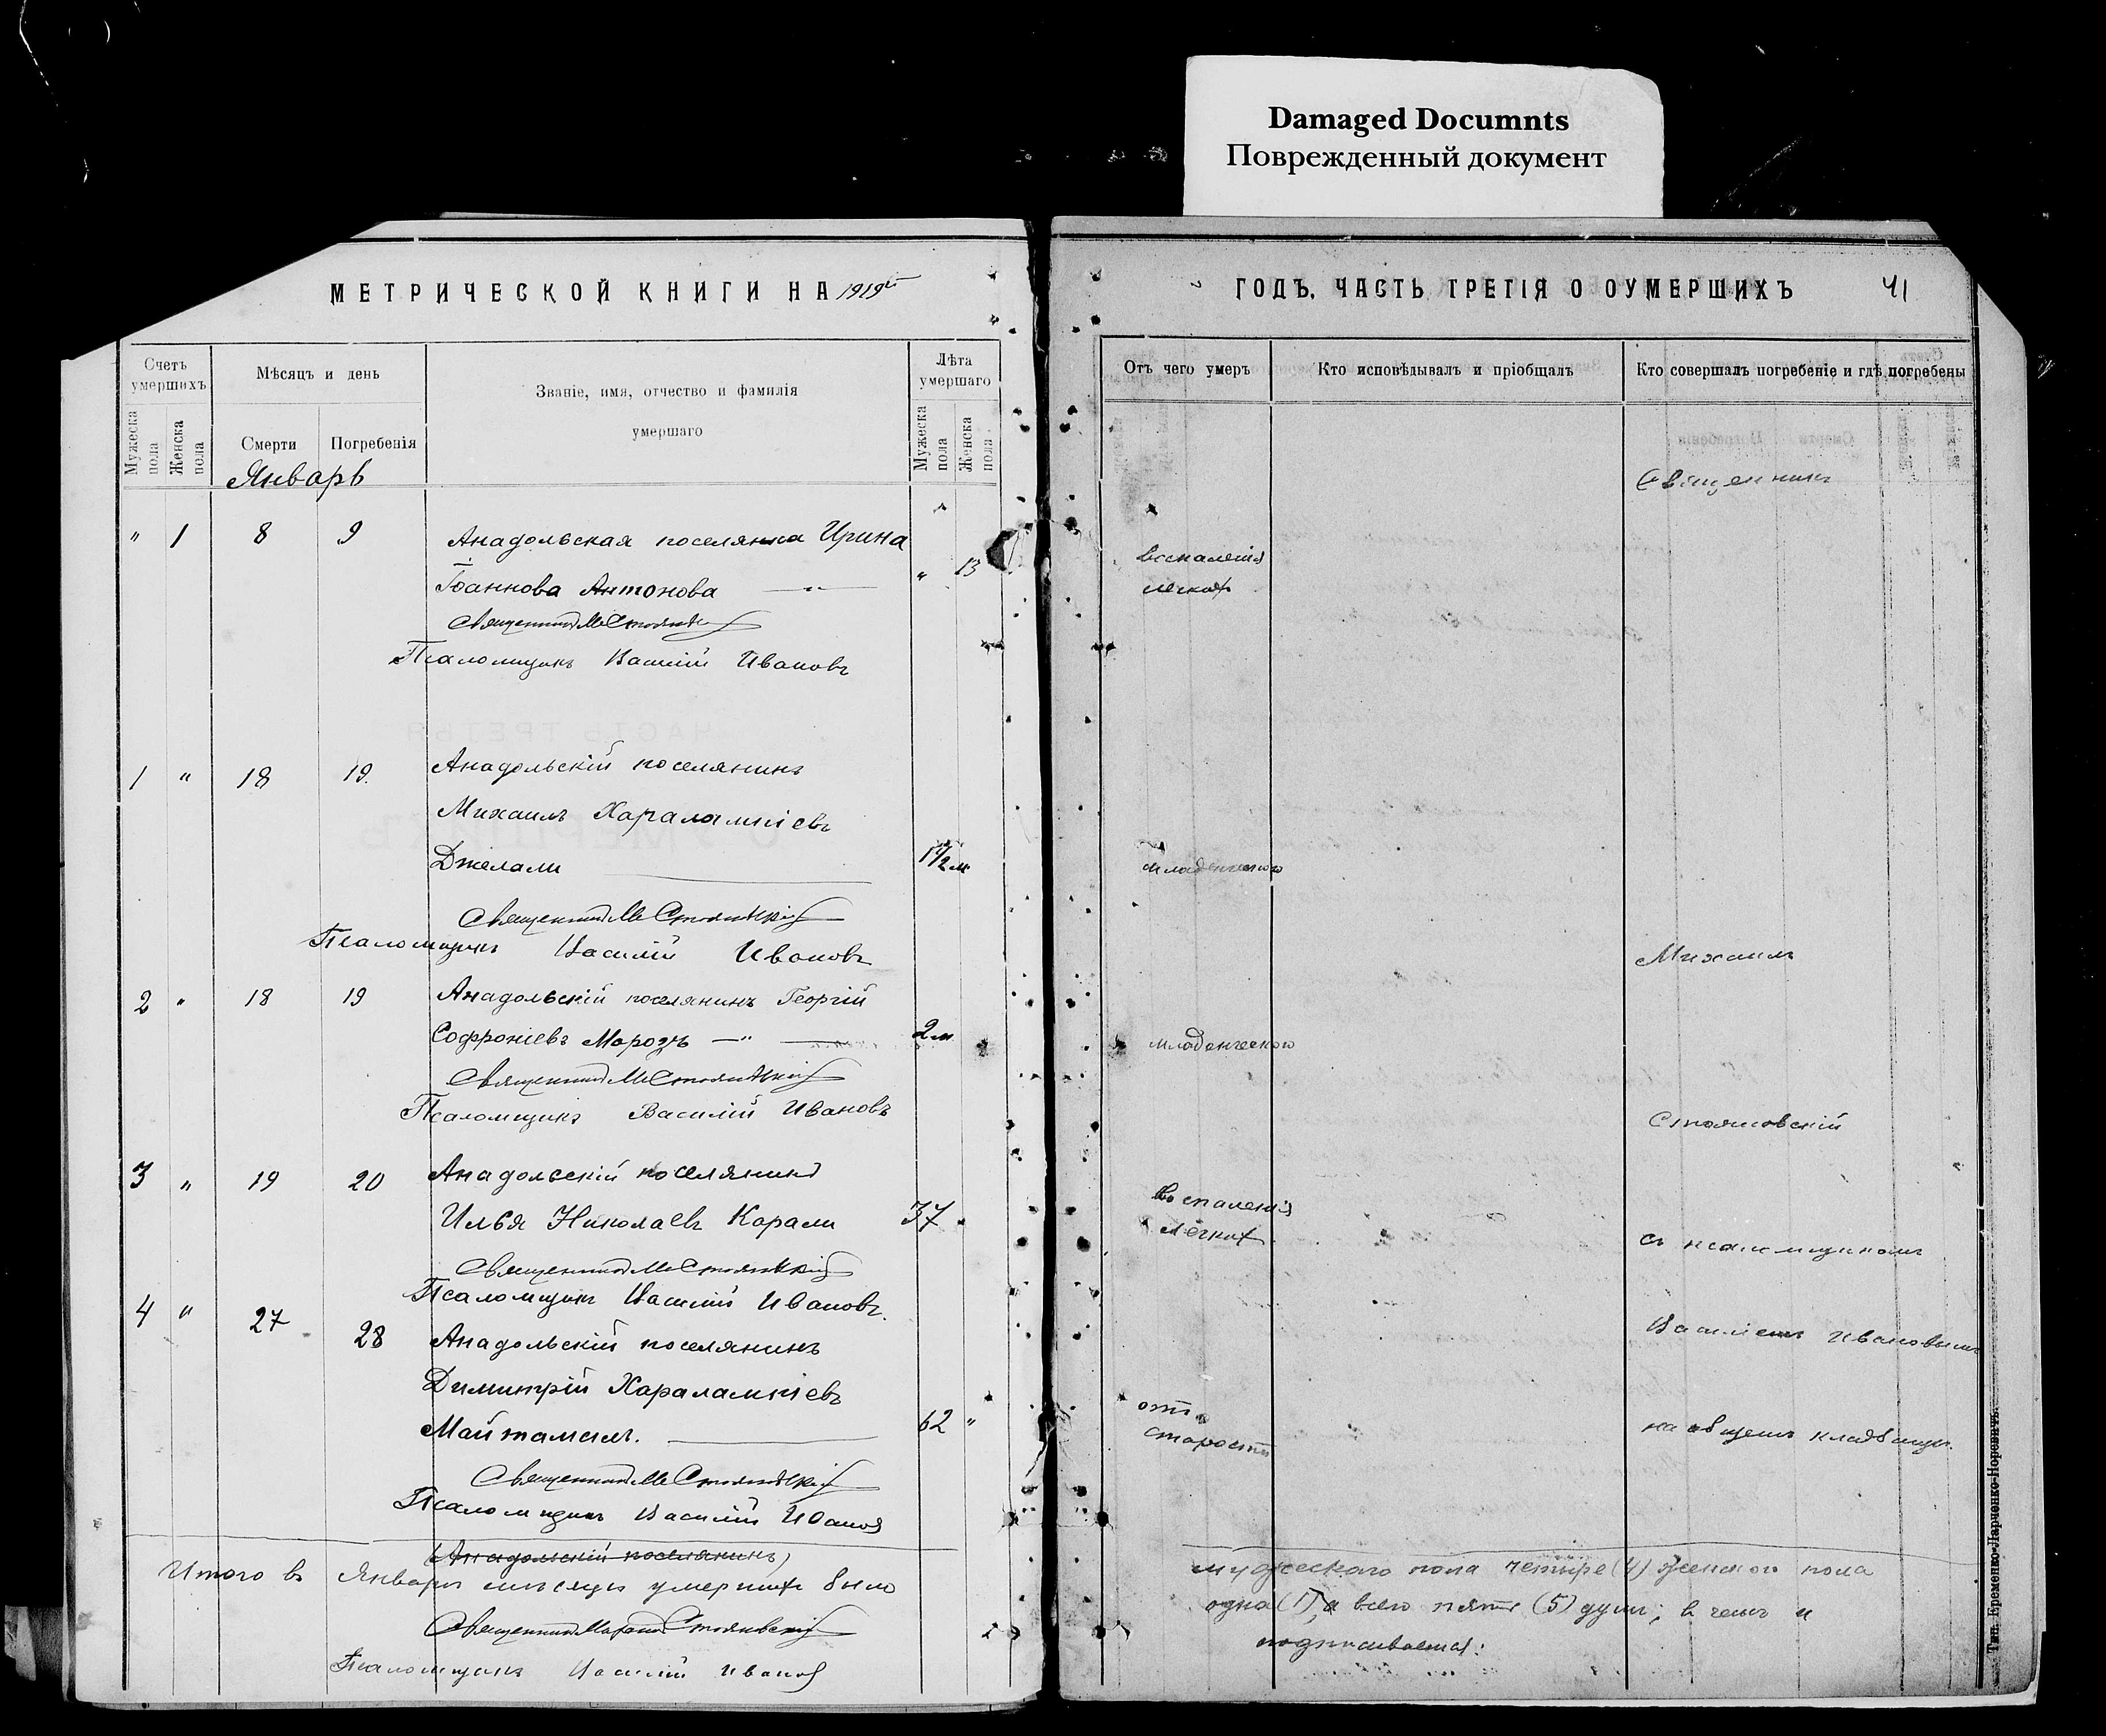 Damaged Documnts
Поврежденный документ
МЕТРИЧЕСКОЙ КНИГИ НА 1919й
Счетъ умершихъ
Мѣсяцъ и день
Званіе, имя, отчество и фамилія
умершаго
Лѣта умершаго
Мужеска пола
Женска пола
Смерти
Погребенія
Мужеска пола
Женска пола
Январь
" 1 8 9 Анадольская поселянка Ирина
Іоаннова Антонова " " 13
Священникъ М Стояновскій
Псаломщикъ Василій Ивановъ
1 " 18 19. Анадольскій поселянинъ
Михаилъ Харалампіевъ
Джелали 1½ м
Священникъ М Стояновскій
Псаломщикъ Василій Ивановъ
2 " 18 19 Анадольскій поселянинъ Георгій
Софроніевъ Морозъ — " — 2 м
Священникъ М Стояновскій
Псаломщикъ Василій Ивановъ
3 " 19 20 Анадольскій поселянинъ
Илья Николаевъ Карали 37 "
Священникъ М Стояновскій
Псаломщикъ Василій Ивановъ.
4 " 27 28 Анадольскій поселянинъ
Димитрій Харалампіевъ
62 "
Священникъ М Стояновскій
Псаломщикъ Василій Ивановъ
(Анадольскій поселянинъ)
Итого въ Январѣ мѣсяцѣ умершихъ было
Священникъ Михаилъ Стояновскій
Псаломщикъ Василій Ивановъ
ГОДЪ, ЧАСТЬ ТРЕТІЯ О ОУМЕРШИХЪ 41
Отъ чего умеръ
Кто исповѣдывалъ и пріобщалъ
Кто совершалъ погребеніе и гдѣ погребены
Священникъ
воспаленія
легкихъ
младенческого
Михаилъ
младенческого
Стояновскій
воспаленія
легкихъ
съ псаломщикомъ
Василіемъ Ивановымъ
отъ
старости
на общемъ кладбищѣ.
мужеского пола четыре (4) женского пола
одна (1), а всего пять (5) душъ; въ чемъ и
подписываемся:
Тип. Еременко-Ларченко-Норевичъ.